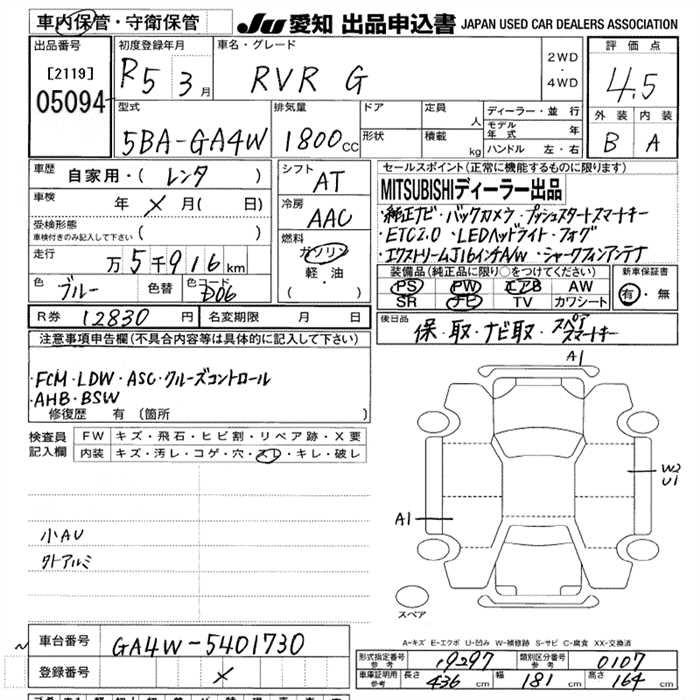 車内保管・守衛保管
JU 愛知 出品申込書 JAPAN USED CAR DEALERS ASSOCIATION
出品番号
[2119]
05094
初度登録年月
R5 3月
車名・グレード
RVR G
2WD
・
4WD
評価点
4.5
外装 内装
B A
型式
5BA-GA4W
排気量
1800cc
ドア
形状
定員 人
積載 kg
ディーラー・並行
モデル年式 年
ハンドル 左・右
車歴
自家用・( レンタ )
車検
年 × 月( 日)
受検形態
車検付きのみ記入して下さい ( )
走行
万5千916km
色
ブルー
色替
色コード
D06
シフト
AT
冷房
AAC
燃料
ガソリン
軽・油
( )
セールスポイント(正常に機能するものに限ります)
MITSUBISHIディーラー出品
・純正ナビ・バックカメラ・プッシュスタートスマートキー
・ETC2.0・LEDヘッドライト・フォグ
・エクストリームJ16インチAW・シャークフィンアンテナ
装備品(純正品に限り○をつけてください)
PS PW エアB AW
SR ナビ TV カワシート
新車保証書
有・無
R券 12830 円
名変期限 月 日
後日品
保・取・ナビ取・スペアスマートキー
注意事項申告欄(不具合内容等は具体的に記入して下さい)
・FCM・LDW・ASC・クルーズコントロール
・AHB・BSW
修復歴 有(箇所 )
検査員
記入欄
FW キズ・飛石・ヒビ割・リペア跡・X要
内装 キズ・汚レ・コゲ・穴・スレ・キレ・破レ
小AU
外アルミ
A1
W2
U1
A1
スペア
A-キズ E-エクボ U-凹み W-補修跡 S-サビ C-腐食 XX-交換済
車台番号
GA4W-5401730
登録番号
×
形式指定番号
参考
19297
類別区分番号
参考
0107
車庫証明用
参考
長さ 436 cm
幅 181 cm
高さ 164 cm